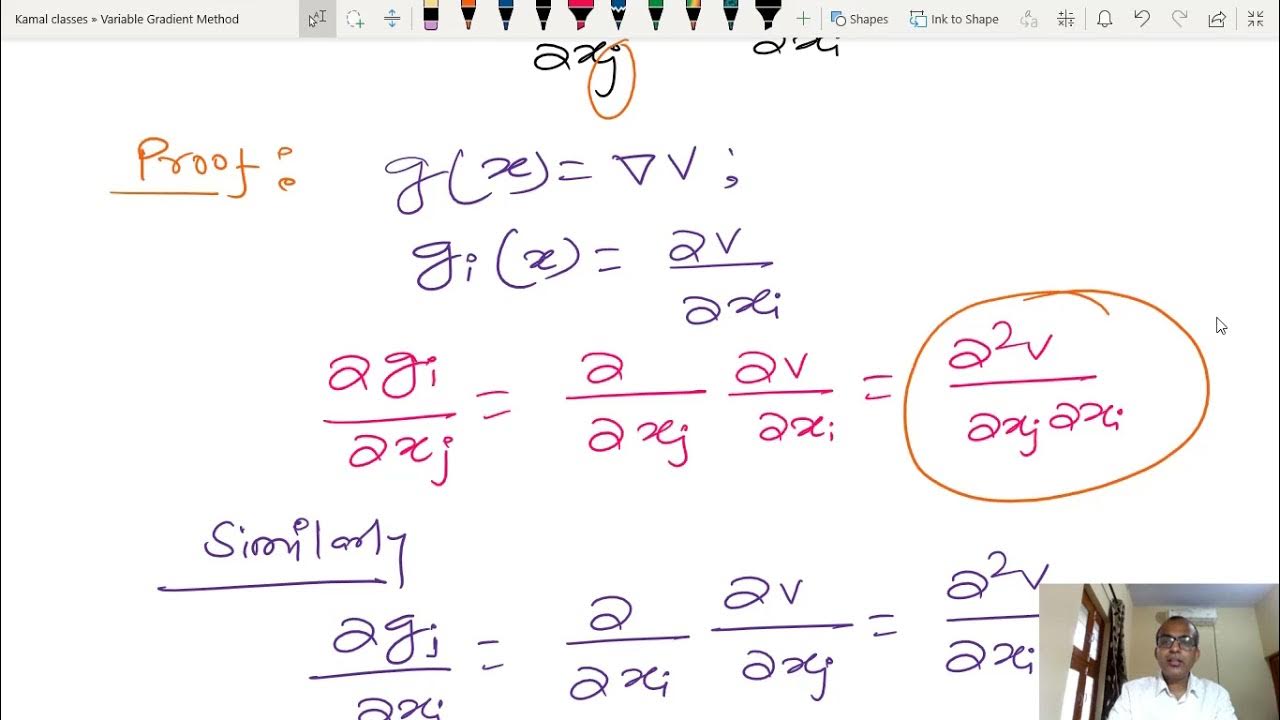 Kamal classes » Variable Gradient Method
Shapes
Ink to Shape
∂xj ∂xi
Proof: g(x) = ∇V ;
gi(x) = ∂V/∂xi
∂gi/∂xj = ∂/∂xj ∂V/∂xi = ∂²V/∂xj∂xi
Similarly
∂gj/∂xi = ∂/∂xi ∂V/∂xj = ∂²V/∂xi